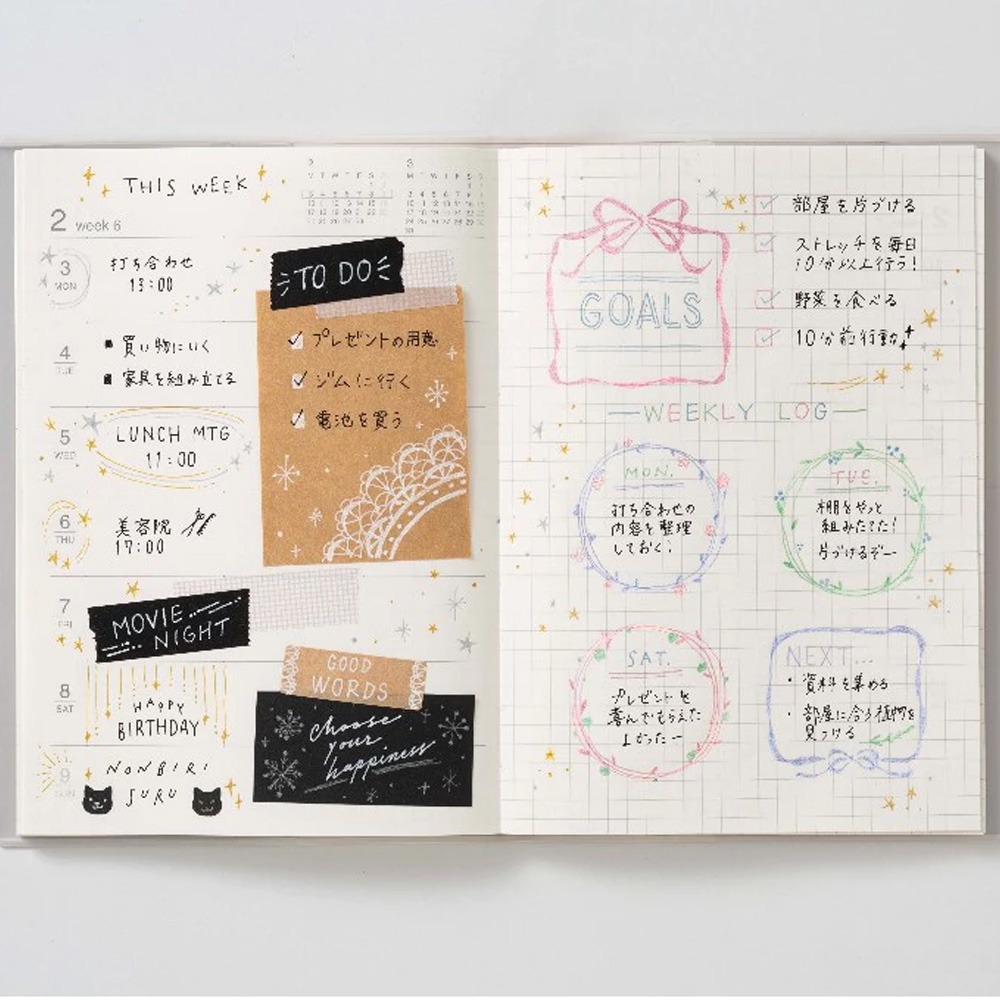 THIS WEEK
2 week 6
2
M T W T F S S
3
M T W T F S S
3
MON
打ち合わせ
13:00
4
TUE
買い物にいく
家具を組み立てる
5
WED
LUNCH MTG
11:00
6
THU
美容院
17:00
7
FRI
MOVIE
NIGHT
8
SAT
HAPPY
BIRTHDAY
9
SUN
NONBIRI
SURU
TO DO
プレゼントの用意
ジムに行く
電池を買う
GOOD
WORDS
choose
your
happiness
GOALS
部屋を片づける
ストレッチを毎日
10分以上行う!
野菜を食べる
10分前行動
WEEKLY LOG
MON.
打ち合わせの
内容を整理
しておく!
TUE.
棚をやっと
組みたてた!
片づけるぞー
SAT.
プレゼントを
喜んでもらえた
よかったー
NEXT...
・資料を集める
・部屋に合う植物を
見つける